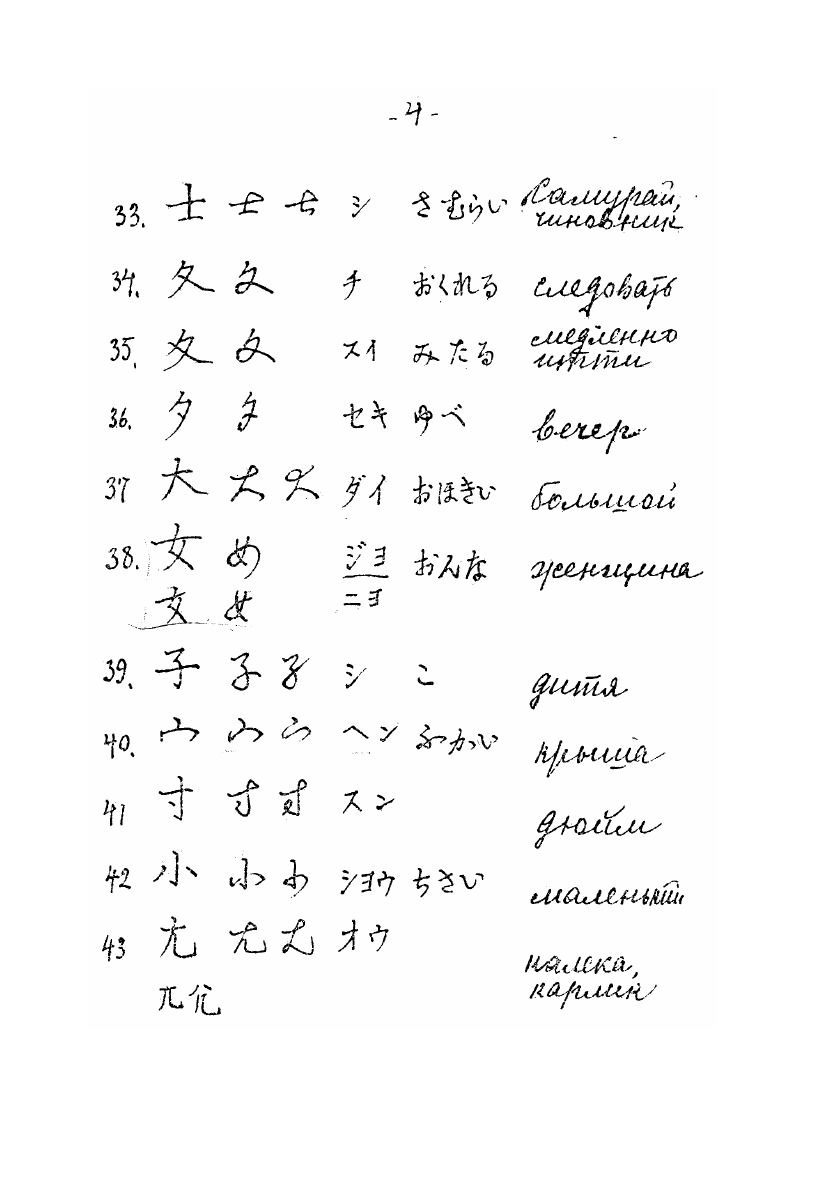 - 4 -
33. 士 士 士 シ さむらい Самурай,
чиновник
34. 夂 夂 チ おくれる следовать
35. 夊 夊 スイ みたる медленно
итти
36. 夕 夕 セキ ゆべ вечер
37 大 大 大 ダイ おほきい большой
38. 女 め ジヨ おんな женщина
女 女 ニヨ
39. 子 子 子 シ こ дитя
40. 宀 宀 宀 ヘン ふかい крыша
41 寸 寸 寸 スン дюйм
42 小 小 小 シヨウ ちさい маленький
43 尢 尢 尢 オウ калека,
兀 尣 карлик